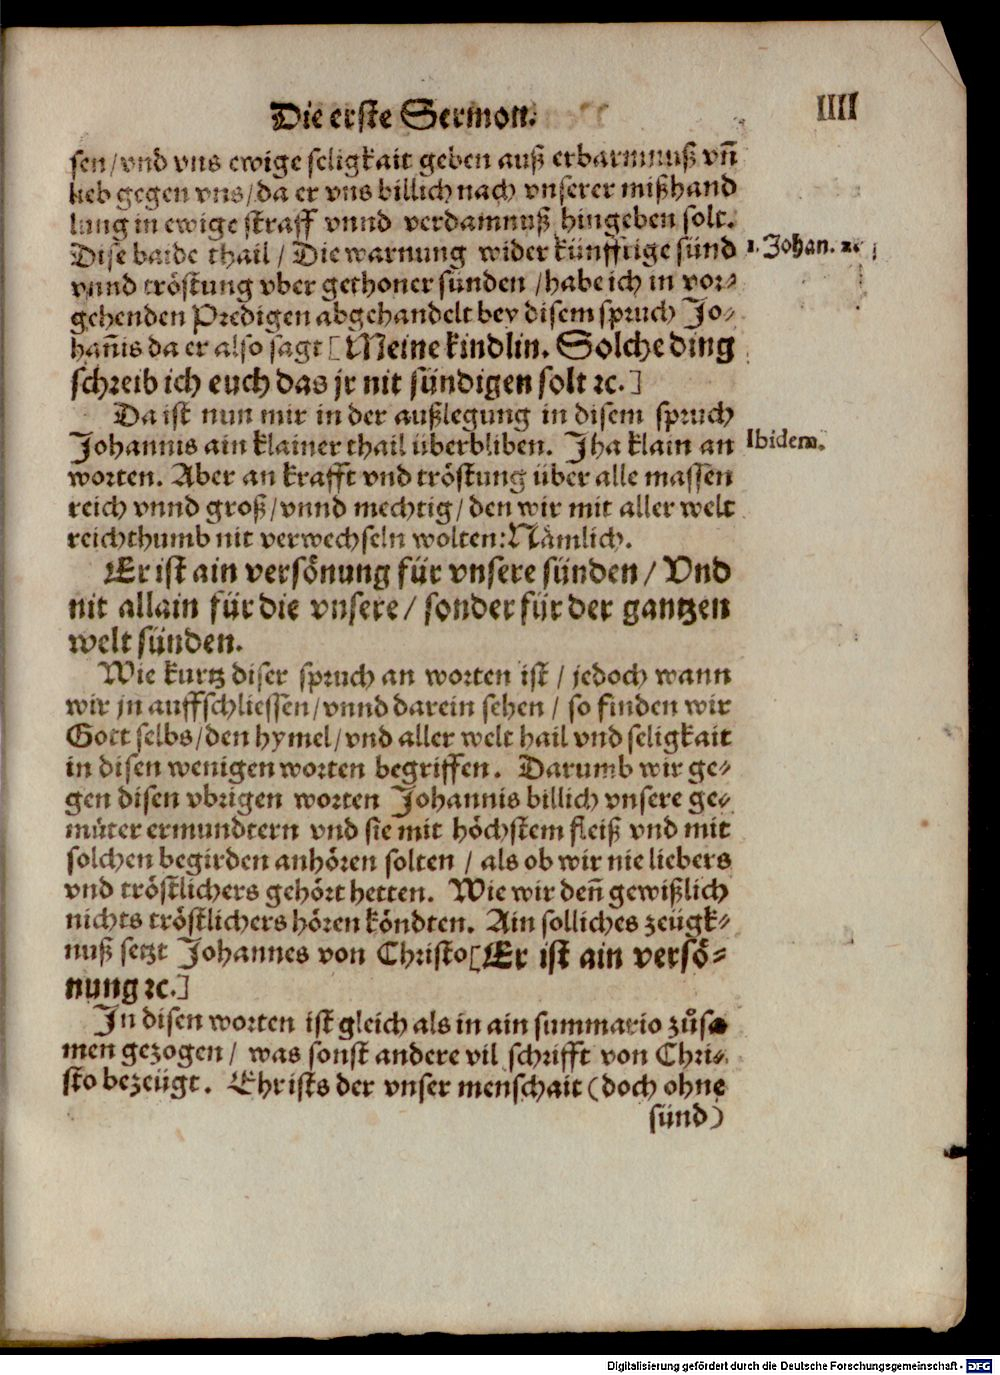 Die erste Sermon.
IIII
sen/vnd vns ewige seligkait geben auß erbarmnuß vñ
lieb gegen vns/da er vns billich nach vnserer mißhand
lung in ewige straff vnnd verdamnuß hingeben solt.
Dise baide thail / Die warnung wider künfftige sünd
1. Johan. 2.
vnnd tröstung vber gethoner sünden /habe ich in vor-
gehenden Predigen abgehandelt bey disem spruch Jo-
hañis da er also sagt [Meine kindlin. Solche ding
schreib ich euch das jr nit sündigen solt ꝛc.]
Da ist nun mir in der außlegung in disem spruch
Johannis ain klainer thail überbliben. Jha klain an
Ibidem.
worten. Aber an krafft vnd tröstung über alle massen
reich vnnd groß/vnnd mechtig/den wir mit aller welt
reichthumb nit verwechseln wolten:Nämlich.
Er ist ain versönung für vnsere sünden / Vnd
nit allain für die vnsere/ sonder für der gantzen
welt sünden.
Wie kurtz diser spruch an worten ist / jedoch wann
wir jn auffschliessen/vnnd darein sehen / so finden wir
Gott selbs/den hymel/vnd aller welt hail vnd seligkait
in disen wenigen worten begriffen. Darumb wir ge-
gen disen vbrigen worten Johannis billich vnsere ge-
müter ermundtern vnd sie mit höchstem fleiß vnd mit
solchen begirden anhören solten / als ob wir nie liebers
vnd tröstlichers gehört hetten. Wie wir deñ gewißlich
nichts tröstlichers hören köndten. Ain solliches zeügk-
nuß setzt Johannes von Christo[Er ist ain versö-
nung ꝛc.]
In disen worten ist gleich als in ain summario zůsa
men gezogen / was sonst andere vil schrifft von Chri-
sto bezeügt. Christs der vnser menschait (doch ohne
sünd)
Digitalisierung gefördert durch die Deutsche Forschungsgemeinschaft - DFG